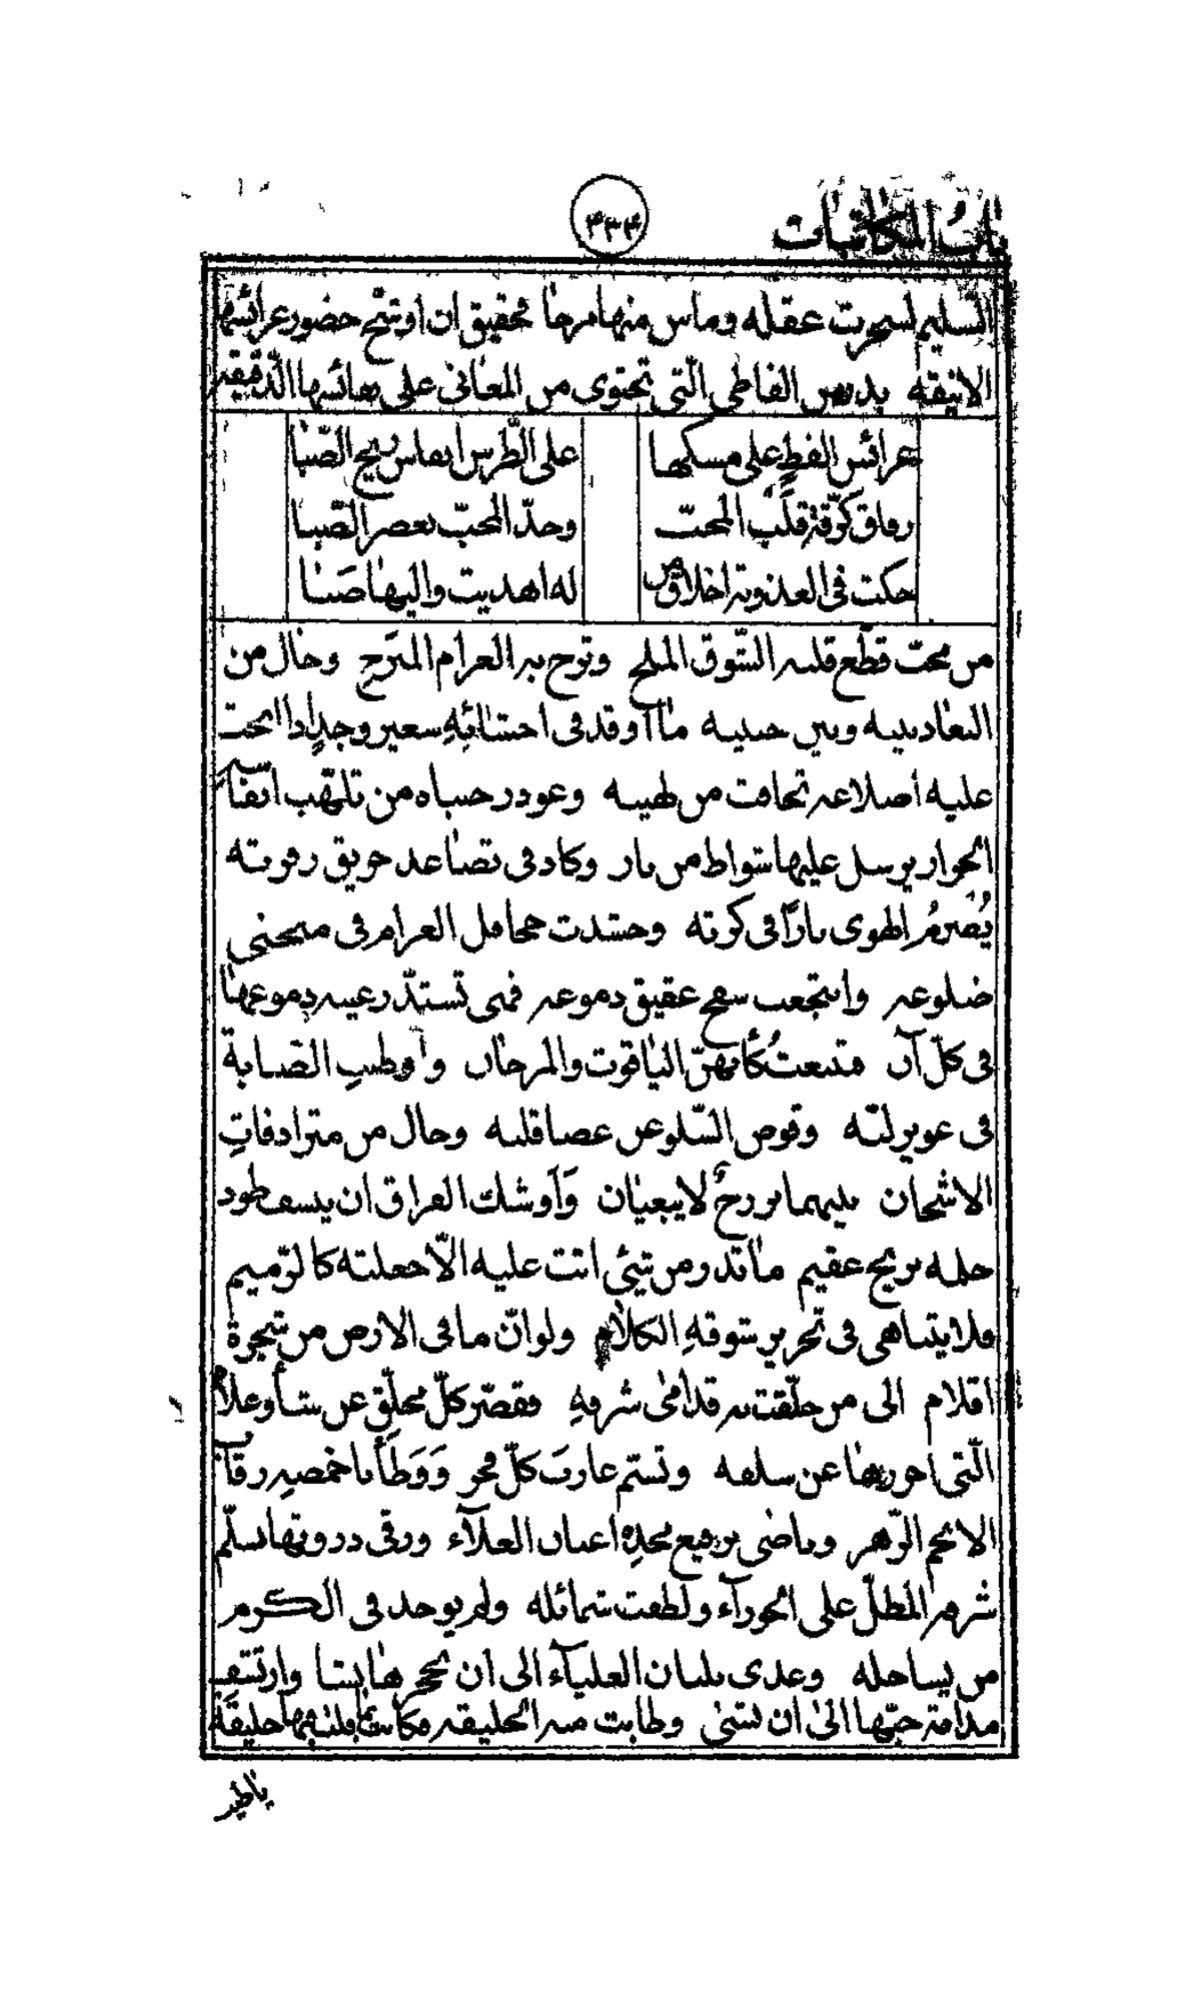 باب المكاتبات
۴۳۴
التسليم لسحرت عقله وماس منها مرحا فحقيق ان اوشح حضور عرائسها
الانيقه بديهى الفاظى الّتى تحتوى من المعانى على نفائسها الدّقيقه
عرائس الفظ على مسكها على الطّرس انفاس ريح الصّبا
رقاق كرّقة قلب المحبّ وخدّ المحبّ بعصر الصّبا
حكت فى العذوبة اخلاق من له اهديت واليها صبا
من محبّ قطّع قلبه الشّوق الملح وبرّح به الغرام المبرّح وحال من
البعاد بينه وبين حبيبه ما اوقد فى احشائهِ سعير وجدٍ اذا انحنت
عليه اضلاعه تجافت من لهيبه وغودر حشاه من تلهّب انفاسه
الحرار يرسل عليها شواظ من نار وكاد فى تصاعد حريق زفرته
يُضرمُ الهوى ناراً فى كرته وحشدت جحافل الغرام فى منحنى
ضلوعه وانبجعت سفح عقيق دموعه فهى تستدّر عينه دموعها
فى كلّ آن فتنبعثُ كأنهنّ الياقوت والمرجان وا الصبابة
فى وقوض السّلو عن عصا قلبه وحال من مترادفاتِ
الاشجان بينهما برزخٌ لايبغيان وَاَوشك الفراق ان ينسف طود
حلمه بريح عقيم ماتذر من شئ اتت عليه الاّ جعلته كالرّميم
فلايتناهى فى تحرير شوقهِ الكلام ولو انّ ما فى الارض من شجرة
اقلام الى من حلّقت به قدامى شرفهِ فقصّر كلّ محلّق عن شأو علاه
الّتى احرزها عن سلفه وتسنّم غارب كلّ فخر وَوَطَأ باخمصيه رقاب
الانجم الزّهر وناضى برفيع مجدِه اعنان العلاآء ورقى ذروتها بسلّم
شرفه المطلّ على الجوزآء ولطفت شمائله ولم يوجد فى الكرم
من يساجله وغذى بلبان العليآء الى ان نشا وارتشف
مدامة حبّها الى ان نشى وطابت منه الخليقه خليقة
ياطير